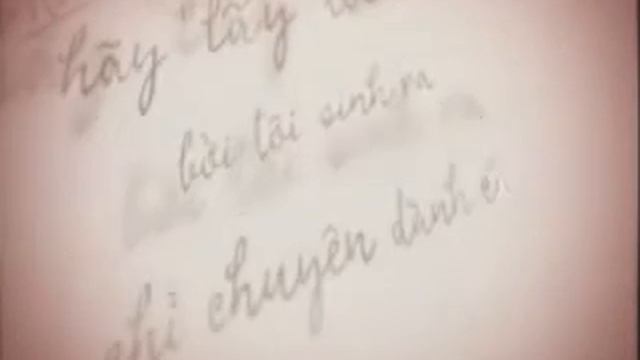 hãy lấy
bởi tôi sinh ra
chỉ chuyên dành